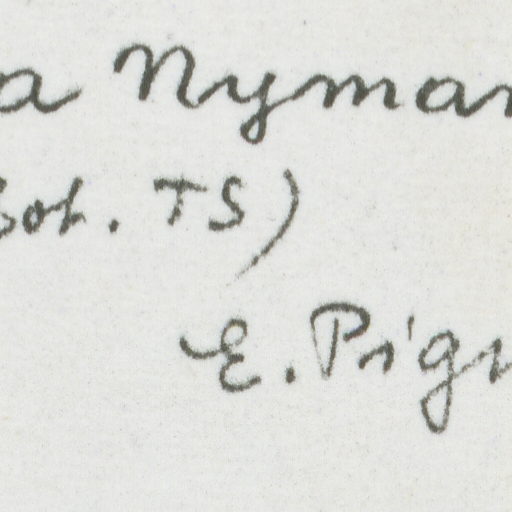 a Nyman
Bot. TS)
E. Pign